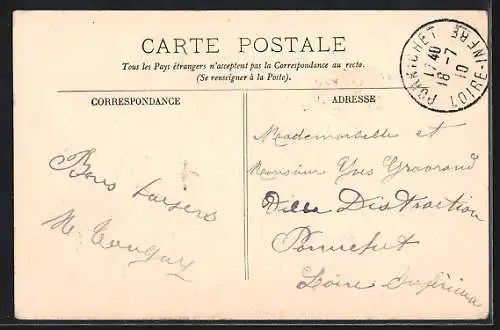 CARTE POSTALE
Tous les Pays étrangers n'acceptent pas la Correspondance au recto.
(Se renseigner à la Poste).
PORNICHET
17 40
18 -7
10
LOIRE-INFRE
CORRESPONDANCE
ADRESSE
Bons baisers
Mademoiselle et
Monsieur Yves
Villa Distraction
Loire Inférieure